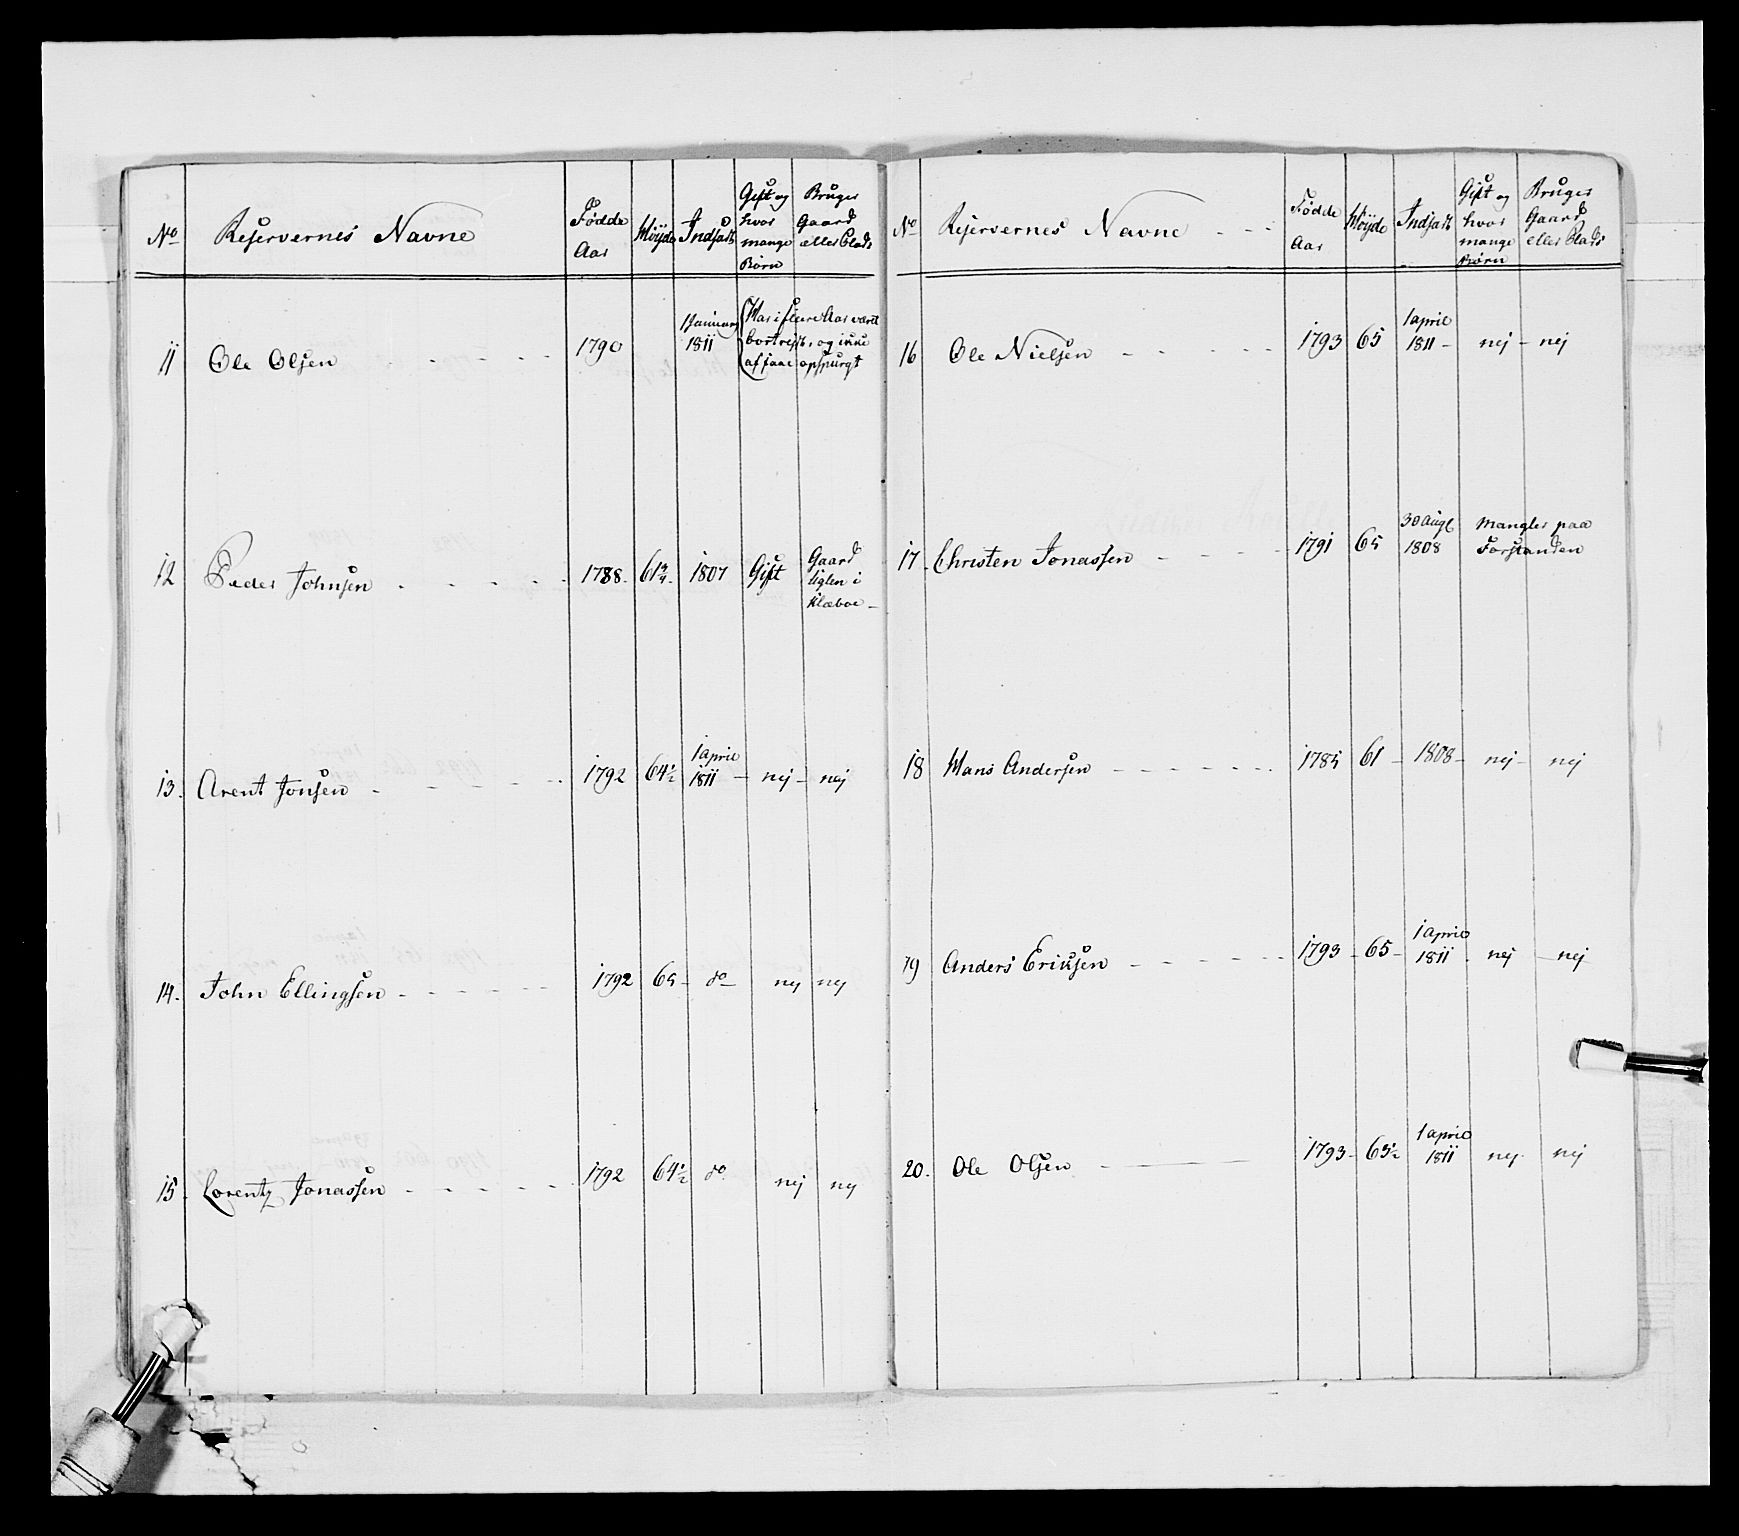 No Reservernes Navne Fødde Aar Høyde Indsadt Gift og hvor mange Børn Bruger Gaard eller Plads
11 Ole Olsen 1790 1 Januar 1811 Har i fleere Aar været bortreist, og ikke at faae opspurgt
12 Peder Johnsen 1788 61 3/4 1807 Gift Gaard Uglen i Klæboe
13. Arent Jonsen 1792 64 1/2 1 April 1811 nej nej
14. John Ellingsen 1792 65 do nej nej
15. Lorentz Jonassen 1792 64 1/2 do nej nej
No Reservernes Navne Fødde Aar Høyde Indsadt Gift og hvor mange Børn Bruger Gaard eller Plads
16 Ole Nielsen 1793 65 1 april 1811 nej nej
17. Christen Jonassen 1791 65 30 Augt 1808 Mangler paa Forstanden
18 Hans Andersen 1785 61 1808 nej nej
19 Anders Eriksen 1793 65 1 april 1811 nej nej
20. Ole Olsen 1793 63 1/2 1 april 1811 nej nej